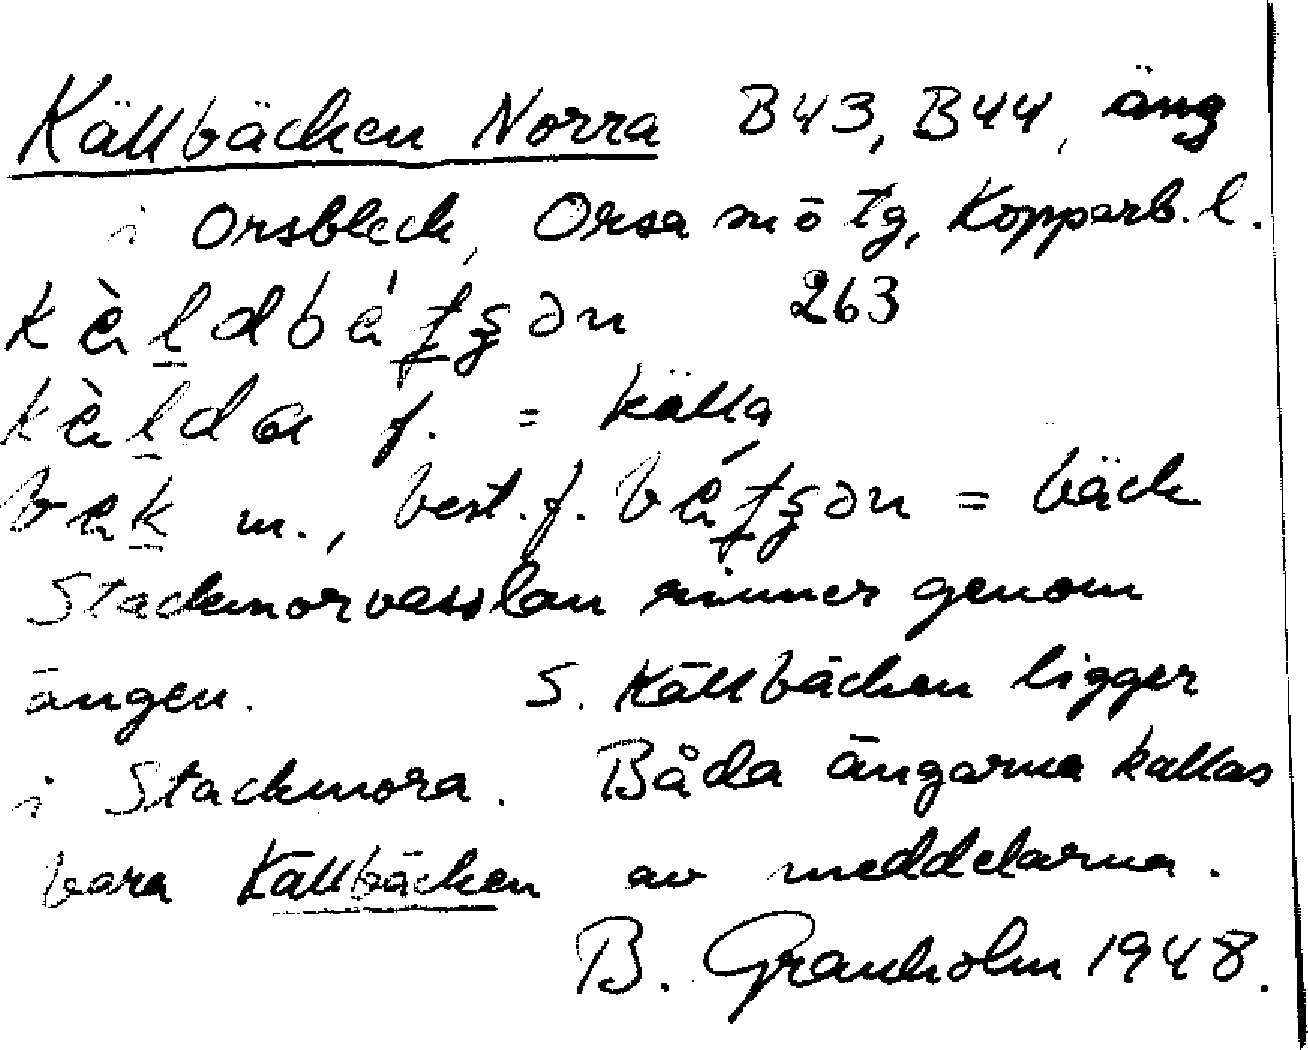 Källbäcken Norra B43, B44, äng
i Orsbleck, Orsa sn ö tg, Kopparb. l.
263
f. = källa
m., best. f. = bäck
Stackmorvasslan rinner genom
ängen. S. Källbäcken ligger
i Stackmora. Båda ängarna kallas
bara Källbäcken av meddelarna.
B. Granholm 1948.